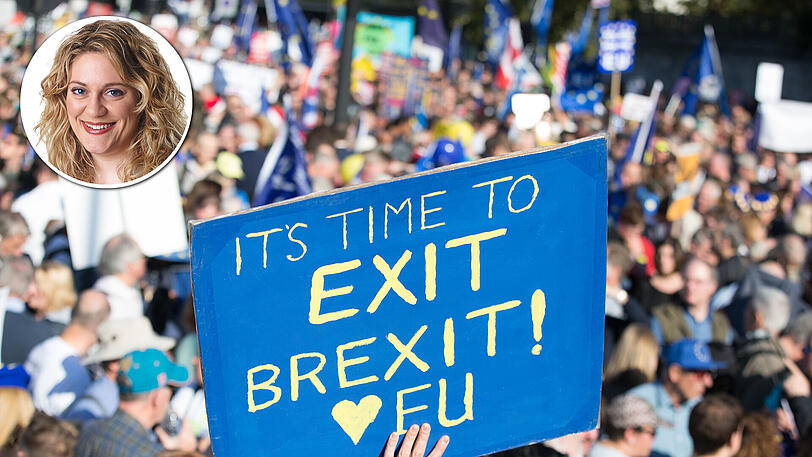 IT'S TIME TO
EXIT
BREXIT!
EU